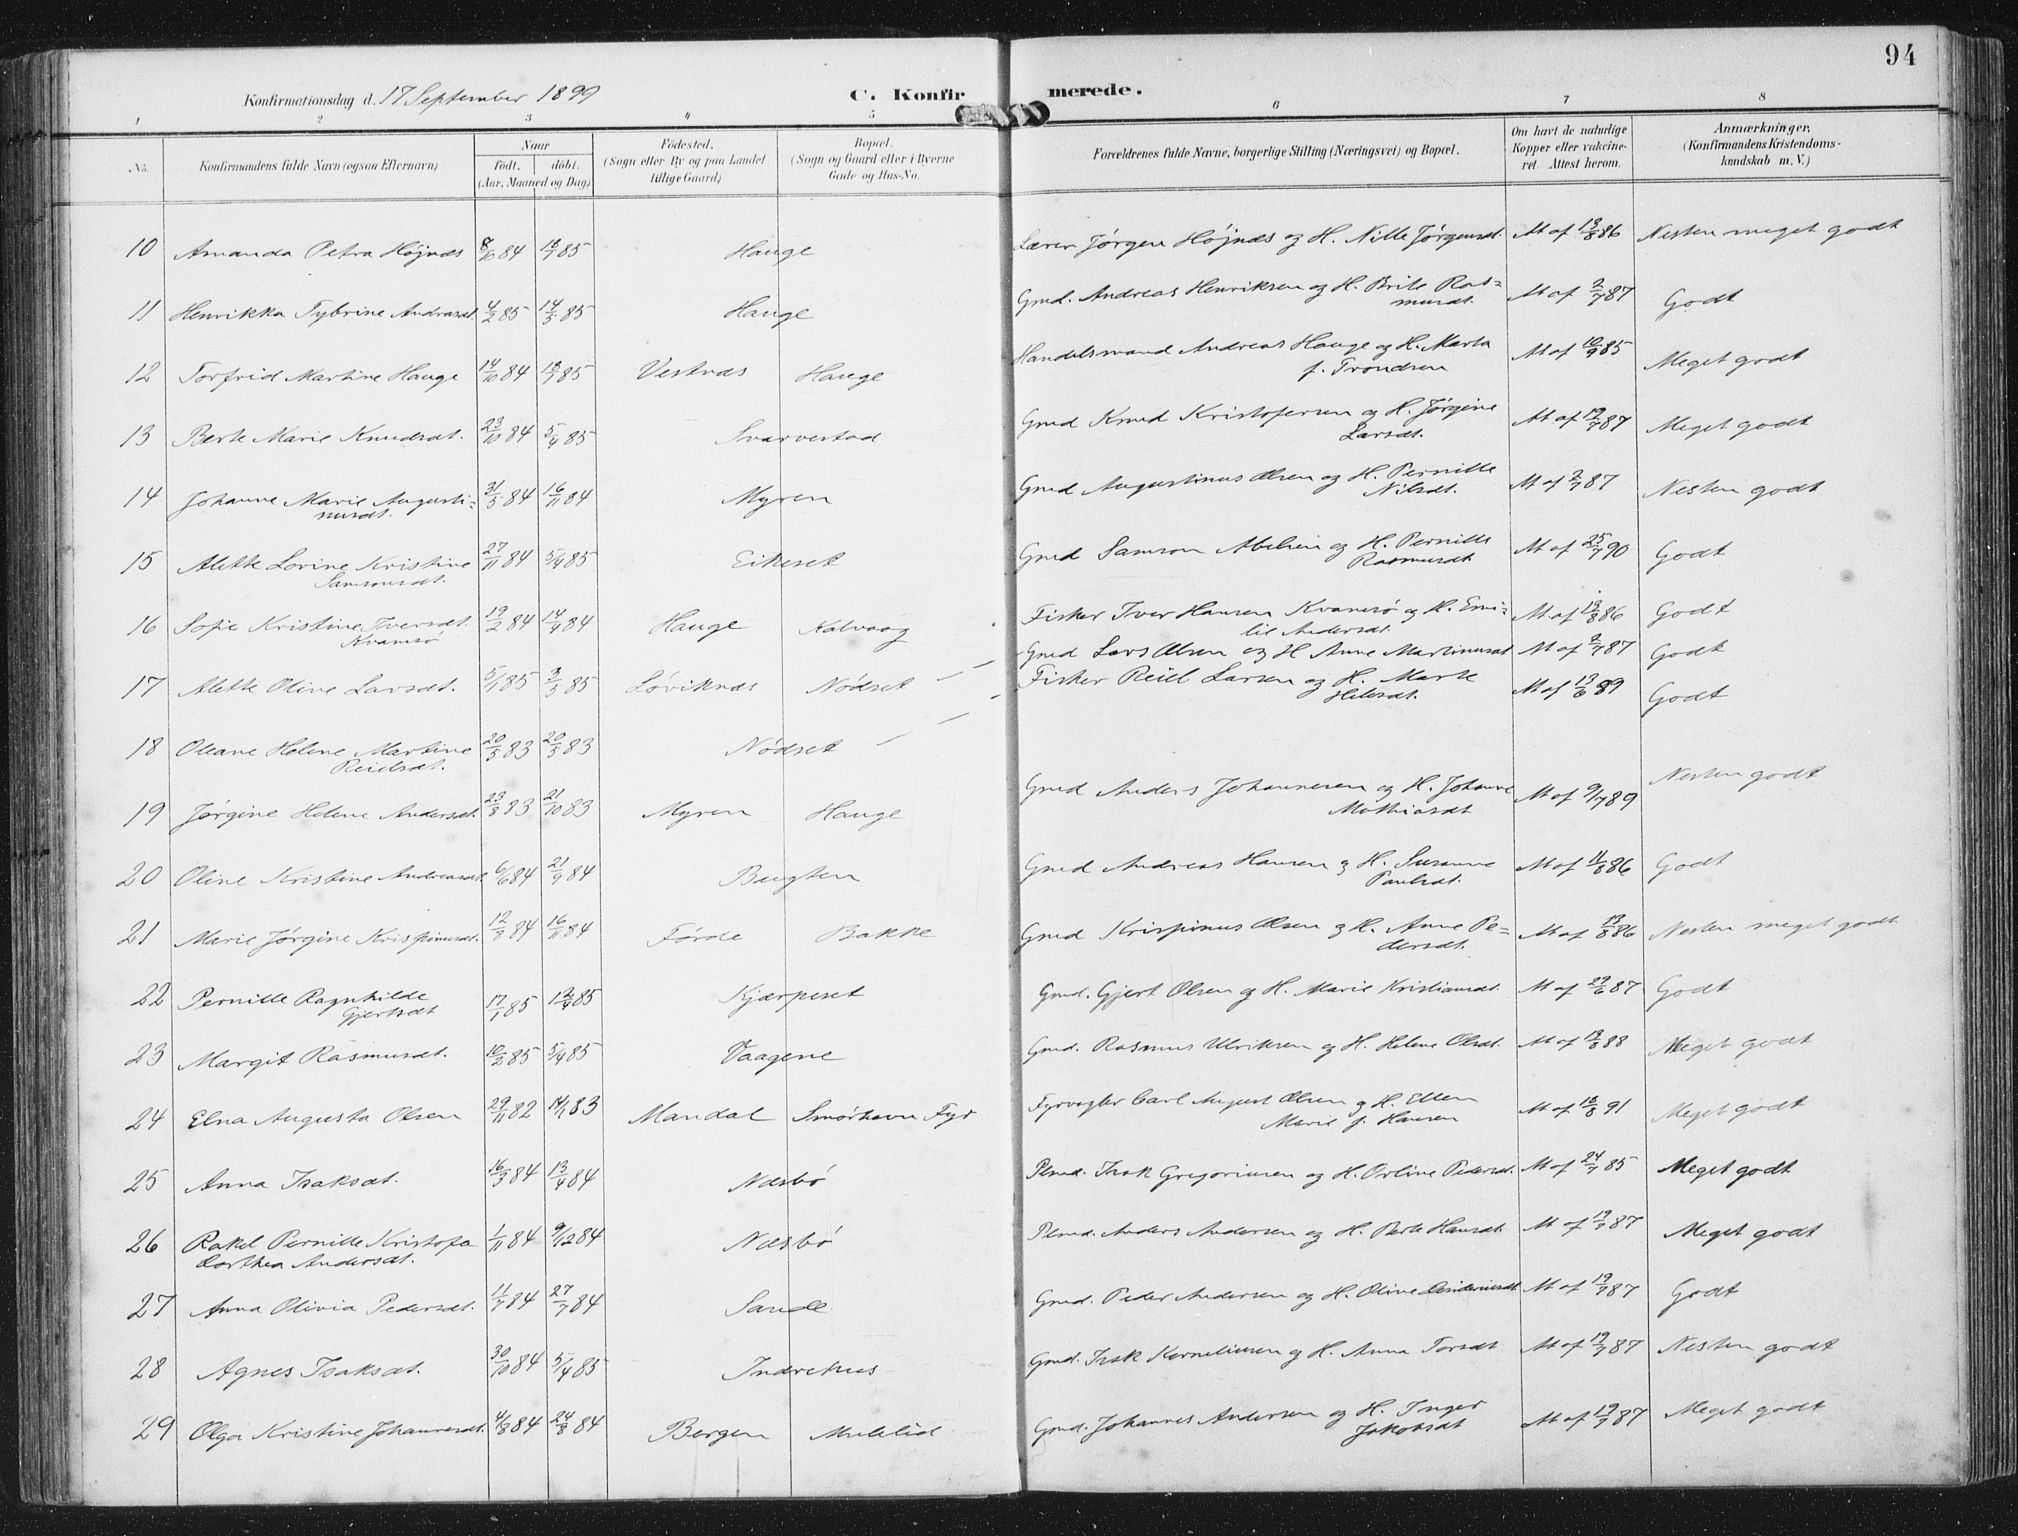 94
Konfirmationsdag d. 17 September 1899 C. Konfirmerede.
1 2 3 4 5 6 7 8
No. Konfirmandens fulde Navn (ogsaa Efternavn) Naar Födt. döbt. (Aar, Maaned og Dag) Födested. (Sogn eller By og paa Landet tillige Gaard) Bopæl. (Sogn og Gaard eller i Byerne Gade og Hus-No. Forældrenes fulde Navne, borgerlige Stilling (Næringsvei) og Bopæl. Om havt de naturlige Kopper eller vakcineret. Attest herom. Anmærkninger, (Konfirmandens Kristendomskundskab m. V.)
10 Amanda Petra Højnæs 8/10 84 18/1 85 Hauge Lærer Jørgen Højnæs og H. Nille Jørgensdt. At af 13/8 86 Nesten meget godt
11 Henrikka Tybrine Andreasdt. 4/2 85 14/5 85 Hauge Gmd. Andreas Henriksen og H. Brite Rasmusdt. At af 2/7 87 Godt
12 Torfrid Martine Hauge 14/10 84 18/1 85 Vestnæs Hauge Handelsmand Andreas Hauge og H. Marta f. Trondsen At af 10/9 85 Meget godt
13 Berte Marie Knudsdt. 23/10 84 5/4 85 Svarvestad Gmd Knud Kristofersen og H. Jørgine Larsdt. At af 19/7 87 Meget godt
14 Johanne Marie Augustinusdt. 31/5 84 16/11 84 Myren Gmd Augustinus Olsen og H. Pernille Nilsdt. At af 2/7 87 Nesten godt
15 Alette Lovine Kristine Samsonsdt. 27/11 84 5/4 85 Eikeset Gmd Samson Abelsen og H. Pernille Rasmusdt At af 25/7 90 Godt
16 Sofie Kristine Iversdt. Kvamsø 19/2 84 14/4 84 Hauge Kalvaag Fisker Iver Hansen Kvamsø og H. Emilie Andersdt. At af 13/8 86 Godt
17 Alette Oline Larsdt. 5/1 85 3/5 85 Løviknæs Nødset Gmd Lars Olsen og H Anne Martinusdt At af 2/7 87 Godt
18 Oleane Helene Martine Reielsdt. 20/5 83 20/5 83 Nødset Fisker Reiel Larsen og H. Marte At af 13/6 89 Godt
19 Jørgine Helene Andersdt. 23/8 83 21/10 83 Myren Hauge Gmd Anders Johannesen og H. Johanne Mathiasdt At af 9/7 89 Nesten godt
20 Oline Kristine Andreasdt 6/6 84 21/9 84 Bugten Gmd Andreas Hansen og H. Susanne Paulsdt. At af 11/8 86 Godt
21 Marie Jørgine Krispinusdt. 12/8 84 16/11 84 Førde Bakke Gmd Krispinus Olsen og H. Anne Pedersdt. At af 13/8 86 Nesten meget godt
22 Pernille Ragnhilde Gjertsdt 17/1 85 12/4 85 Kjærpeset Gmd. Gjert Olsen og H. Marie Kristiansdt. At af 29/6 87 Godt
23 Margit Rasmusdt. 10/2 85 5/4 85 Vaagene Gmd. Rasmus Ulriksen og H. Helene Olsdt. At af 13/8 88 Meget godt
24 Elna Augusta Olsen 29/11 82 14/1 83 Mandal Smørhavn Fyr Fyrvogter Carl August Olsen og H. Ellen Marie f. Hansen At af 18/8 91 Meget godt
25 Anna Isaksdt. 16/3 84 13/4 84 Næsbø Plmd. Isak Gregoriusen og H. Orline Pedersdt. At af 24/7 85 Meget godt
26 Rakel Pernille Kristofa Dorthea Andersdt. 1/11 84 9/12 84 Næsbø Plmd. Anders Andersen og H. Berte Hansdt. At af 19/7 87 Meget godt
27 Anna Olivia Pedersdt. 11/7 84 27/7 84 Sande Gmd. Peder Andersen og H. Oline At af 19/7 87 Godt
28 Agnes Isaksdt. 30/10 84 5/4 85 Indrehus Gmd. Isak Korneliusen og H. Anna Torsdt At af 19/7 87 Nesten godt
29 Olga Kristine Johannesdt. 4/8 84 24/8 84 Bergen Mulelid Gmd. Johannes Andersen og H. Inger Jakobsdt At af 19/7 87 Meget godt